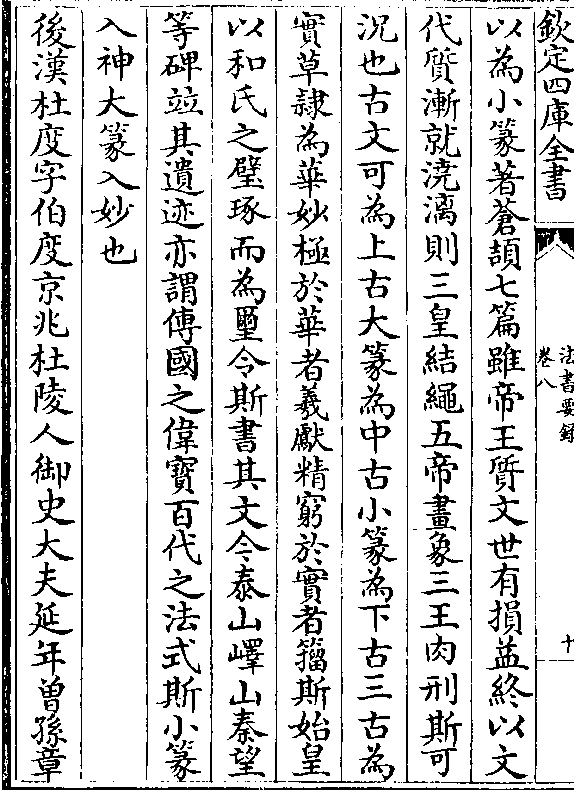 欽定四庫全書
法書要錄
卷八
十
以為小篆著蒼頡七篇雖帝王質文世有損益終以文
代質漸就澆漓則三皇結繩五帝畫象三王肉刑斯可
況也古文可為上古大篆為中古小篆為下古三古為
實草隷為華妙極於華者羲獻精窮於實者籀斯始皇
以和氏之璧琢而為璽令斯書其文今泰山嶧山秦望
等碑竝其遺迹亦謂傳國之偉寶百代之法式斯小篆
入神大篆入妙也
後漢杜度字伯度京兆杜陵人御史大夫延年曽孫章